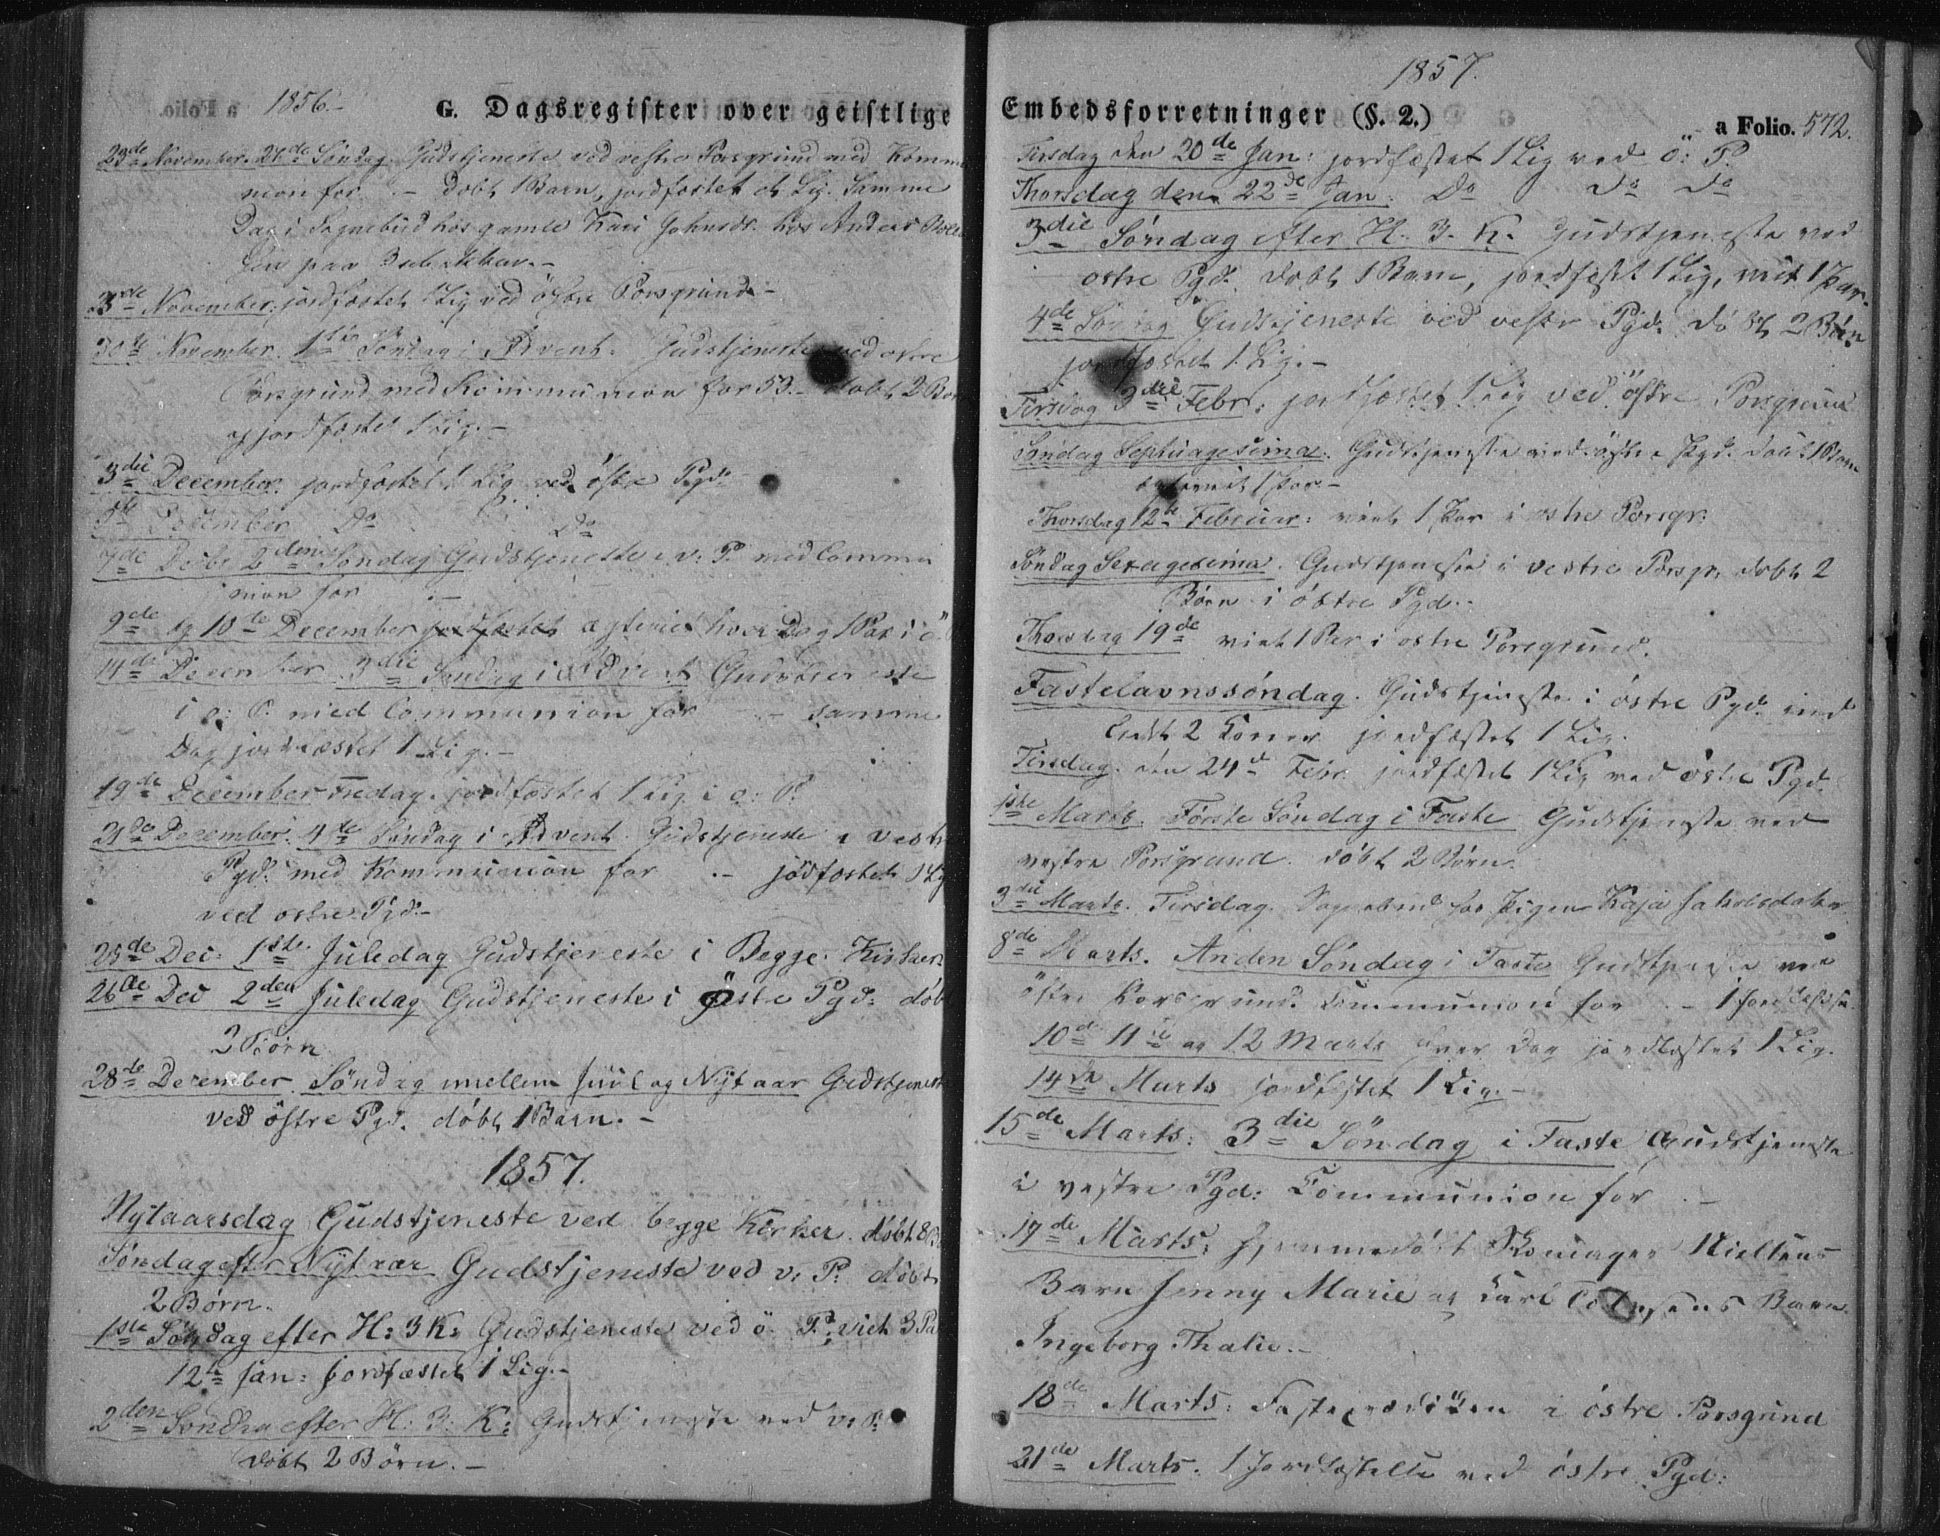 1856.
G. Dagsregister over geistlige
23de November. Søndag. Gudstjeneste ved vestre Porsgrund med Kommu
nion for .- Døbt 1 Barn, jordfæstet Lig. Samme
Dag i Sognebud hos gamle Kari hos Anders
paa
November. jordfæstet 1 Lig ved østre Porsgrund.-
30te November. 1ste Søndag i Advent. Gudstjeneste ved østre
Porsgrund med Kommunion for 53.- døbt 2 Bør
jordfæstet 1 Lig.-
3die December. jordfæstet 1 Lig ved østre Pgd.
December Do Do
7de Decbr. 2den Søndag Gudstjeneste i v. P. med Commu
nion for .-
9de og 10de December jordfæstet egteviet hver Dag 1 Par i ö
14de December 3die Søndag i Advent Gudstjeneste
i ø: P. med Communion for .- samme
Dag jordfæstet 1 Lig.-
19de December Fredag. jordfæstet 1 Lig i ø: P.
21de December. 4de Søndag i Advent. Gudstjeneste i vestr
Pgd. med Kommunion for .- jordfæstet 1 Lig
ved østre Pgd.-
25de Dec: 1ste Juledag Gudstjeneste i Begge Kirker
26de Dec 2den Juledag Gudstjeneste i Østre Pgd: døbt
2 Børn
28de December. Søndag mellem Juul og Nytaar Gudstjeneste
ved østre Pgd. døbt 1 Barn.-
1857.
Nytaarsdag Gudstjeneste ved begge Kirker. døbt 8 B
Søndag efter Nytaar Gudstjeneste ved v. P. døbt
2 Børn.
1ste Søndag efter H: 3 K: Gudstjeneste ved ø. P. viet 3 Pa
12te Jan: jordfæstet 1 Lig.-
2den Søndag efter H: 3: K: Gudstjeneste ved v. P.
døbt 2 Børn.-
1857.
Embedsforretninger (§. 2.)
a Folio. 572.
Tirsdag den 20de Jan: jordfæstet 1 Lig ved ö: P.
Thorsdag den 22de Jan. Do Do Do
3die Søndag efter H. 3. K. Gudstjeneste ved
østre Pgd. døbt 1 Barn, jordfæstet 1 Lig, viet 1 Par.
4de Søndag Gudstjeneste ved vestr Pgd. døbt 2 Børn
jordfæstet 1 Lig.-
Tirsdag 3die Febr. jordfæstet 1 Lig ved østre Porsgrund
Søndag Septuagesima. Gudstjeneste ved østre Pgd. døbt 1 Barn
viet 1 Par.-
Thorsdag 12te Februar: viet 1 Par i østre Porsgr.
Søndag Sexagesima. Gudstjeneste i vestre Porsgr. døbt 2
Børn i østre Pgd.-
Thorsdag 19de viet 1 Par i østre Porsgrund.
Fastelavnssøndag. Gudstjeneste i østre Pgd. ind
ledt 2 Koner jordfæstet 1 Lig.
Tirsdag. den 24de Febr. jordfæstet 1 Lig ved østre Pgd.
1ste Marts. Første Søndag i Faste Gudstjeneste ved
vestre Porsgrund. døbt 2 Børn.
3die Marts. Tirsdag. Sognebud hos Pigen Kaja Jakobsdatter
8de Marts. Anden Søndag i Faste Gudstjeneste ved
østre Porsgrund. Communion for .- 1 Jordfæstelse
10de 11te og 12 Marts hver Dag jordfæstet 1 Lig.
14de Marts jordfæstet 1 Lig.-
15de Marts: 3die Søndag i Faste Gudstjeneste
i vestre Pgd: Communion for .-
17de Marts: hjemmedøbt Skomager Nielsens
Barn Jenny Marie og Carl Barn
Ingeborg Thalie.-
18de Marts: Fasteprædiken i østre Porsgrund
21de Marts. 1 Jordfæstelse ved østre Pgd: